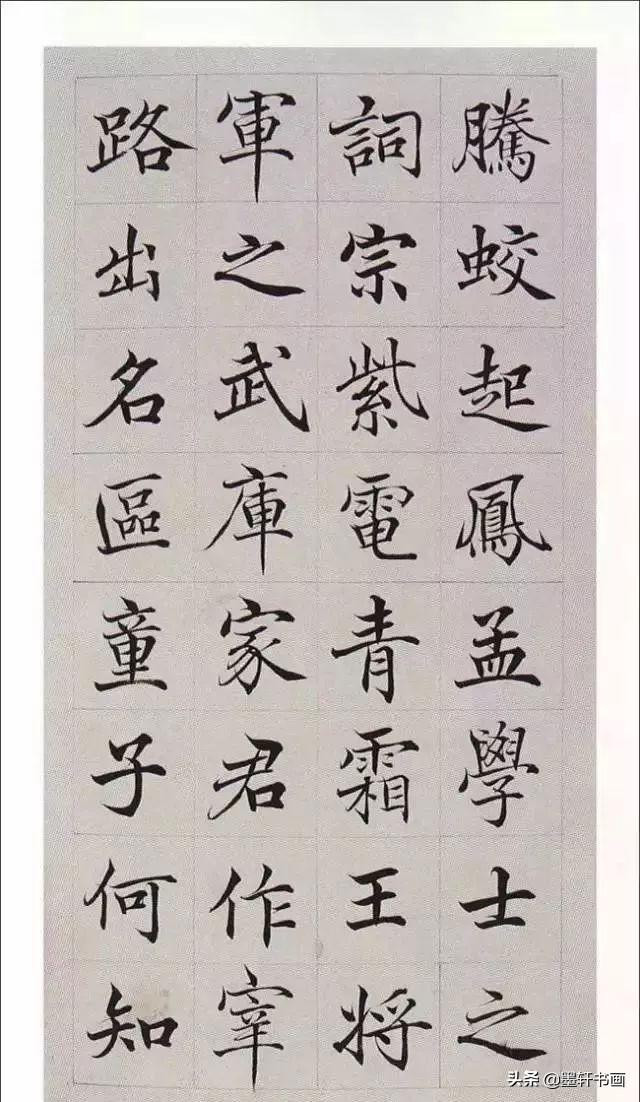 騰蛟起鳳孟學士之
詞宗紫電青霜王將
軍之武庫家君作宰
路出名區童子何知
头条 @墨轩书画